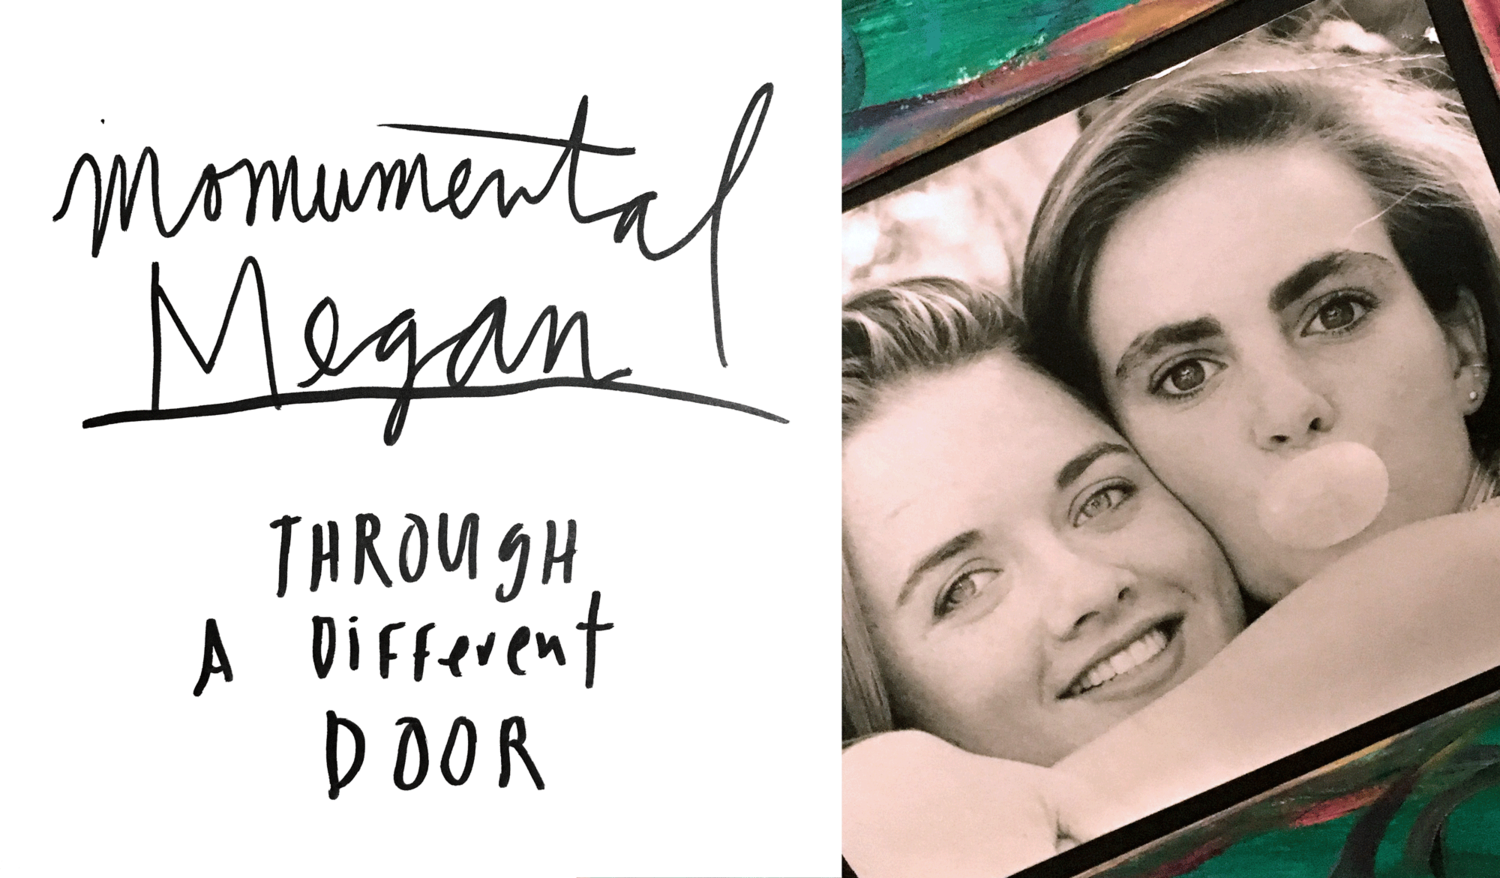 Monumental
Megan
THROUGH
A DiFFerent
DOOR